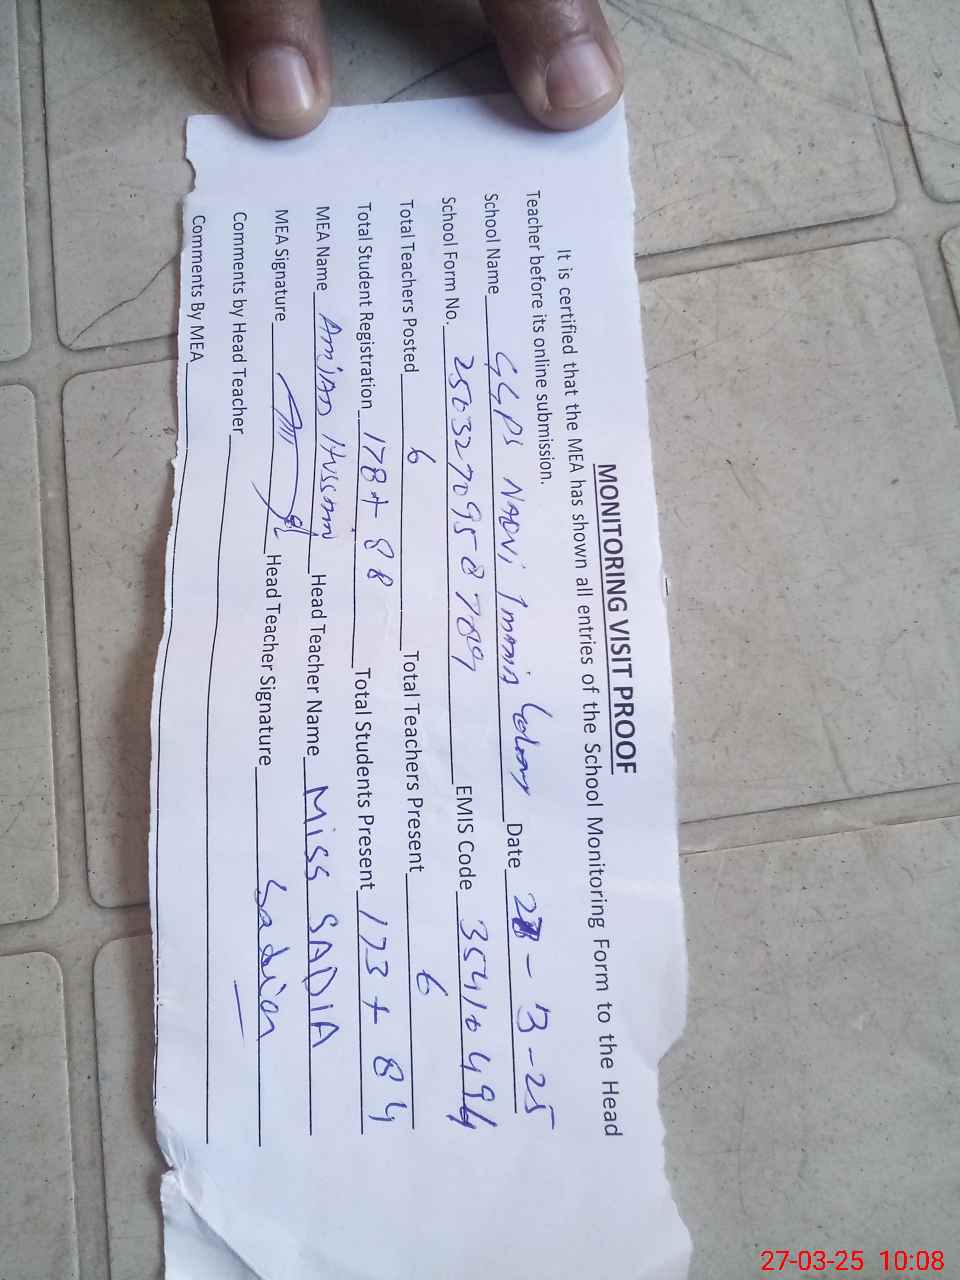 MONITORING VISIT PROOF
It is certified that the MEA has shown all entries of the School Monitoring Form to the Head
Teacher before its online submission.
School Name GGPS NADNi Imamia Colony Date 27-3-25
School Form No. 250327095 EMIS Code 35410494
Total Teachers Posted 6 Total Teachers Present 6
Total Student Registration 178+88 Total Students Present 173+84
MEA Name AmjAD Hussain Head Teacher Name MiSS SADIA
MEA Signature Head Teacher Signature Sadia
Comments by Head Teacher
Comments By MEA
27-03-25 10:08